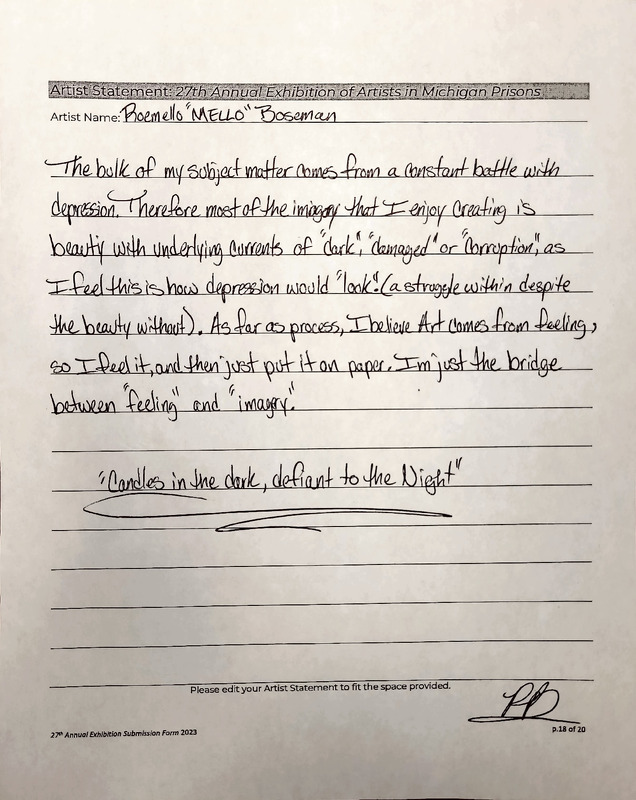 Artist Statement: 27th Annual Exhibition of Artists in Michigan Prisons
Artist Name: Roemello "MELLO" Boseman
The bulk of my subject matter comes from a constant battle with
depression. Therefore most of the imagry that I enjoy creating is
beauty with underlying currents of "dark", "damaged" or "corruption", as
I feel this is how depression would "look". (a struggle within despite
the beauty without). As far as process, I believe Art comes from feeling,
so I feel it, and then just put it on paper. I'm just the bridge
between "feeling" and "imagry".
"Candles in the dark, defiant to the Night"
Please edit your Artist Statement to fit the space provided.
RB
27th Annual Exhibition Submission Form 2023
p.18 of 20